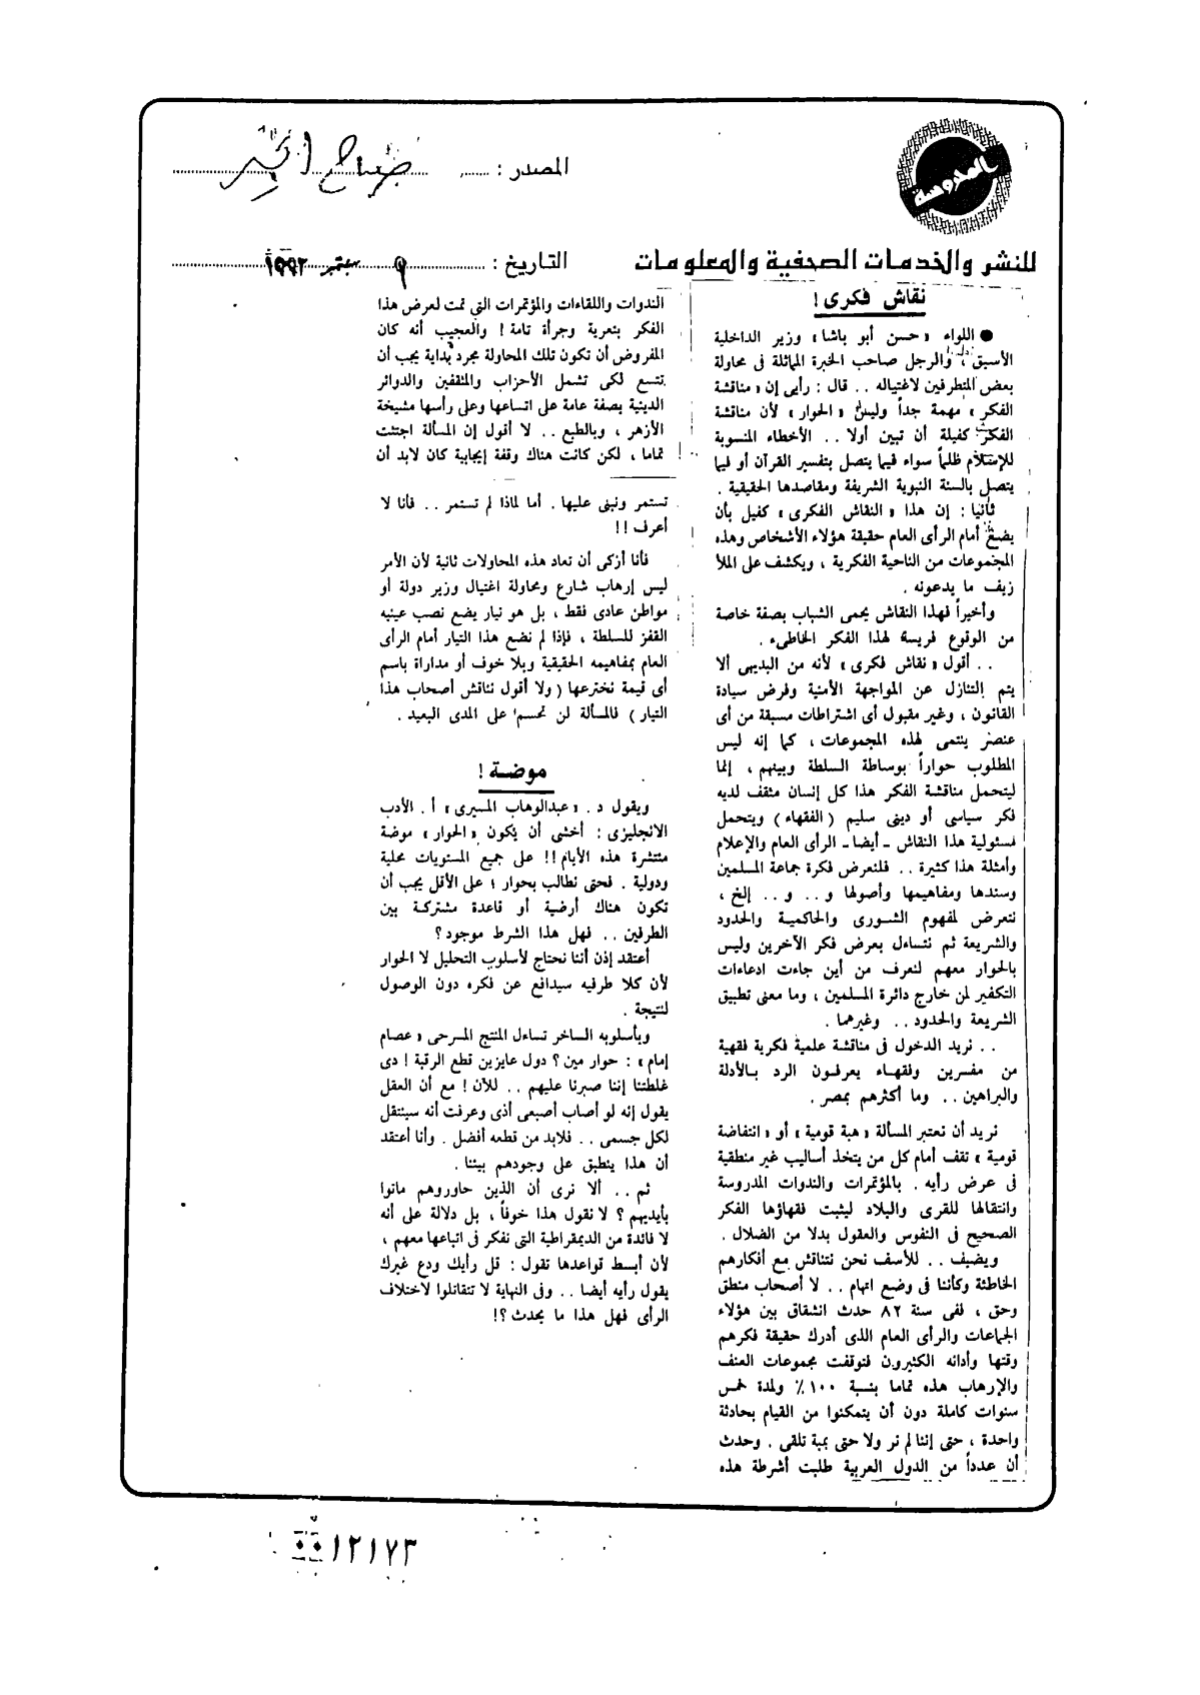 المدروسة
المصدر : صباح الخير
للنشر والخدمات الصحفية والمعلومات
التاريخ : ٩ سبتمبر ١٩٩٢
نقاش فكرى !
● اللواء « حسن أبو باشا » وزير الداخلية
الأسبق ، والرجل صاحب الخبرة المماثلة فى محاولة
بعض المتطرفين لاغتياله .. قال : رأيى إن « مناقشة
الفكر » مهمة جداً وليس « الحوار » لأن مناقشة
الفكر كفيلة أن تبين أولا .. الأخطاء المنسوبة
للإسلام ظلماً سواء فيما يتصل بتفسير القرآن أو فيما
يتصل بالسنة النبوية الشريفة ومقاصدها الحقيقية .
ثانيا : إن هذا « النقاش الفكرى » كفيل بأن
يضع أمام الرأى العام حقيقة هؤلاء الأشخاص وهذه
المجموعات من الناحية الفكرية ، ويكشف على الملأ
زيف ما يدعونه .
وأخيراً فهذا النقاش يحمى الشباب بصفة خاصة
من الوقوع فريسة لهذا الفكر الخاطىء .
.. أقول « نقاش فكرى » لأنه من البديهى ألا
يتم التنازل عن المواجهة الأمنية وفرض سيادة
القانون ، وغير مقبول أى اشتراطات مسبقة من أى
عنصر ينتمى لهذه المجموعات ، كما إنه ليس
المطلوب حواراً بوساطة السلطة وبينهم ، إنما
ليتحمل مناقشة الفكر هذا كل إنسان مثقف لديه
فكر سياسى أو دينى سليم ( الفقهاء ) ويتحمل
مسئولية هذا النقاش - أيضا - الرأى العام والإعلام
وأمثلة هذا كثيرة .. فلنعرض فكرة جماعة المسلمين
وسندها ومفاهيمها وأصولها و .. و .. إلخ ،
نتعرض لمفهوم الشورى والحاكمية والحدود
والشريعة ثم نتساءل بعرض فكر الآخرين وليس
بالحوار معهم لنعرف من أين جاءت ادعاءات
التكفير لمن خارج دائرة المسلمين ، وما معنى تطبيق
الشريعة والحدود .. وغيرهما .
.. نريد الدخول فى مناقشة علمية فكرية فقهية
من مفسرين وفقهاء يعرفون الرد بالأدلة
والبراهين .. وما أكثرهم بمصر .
نريد أن نعتبر المسألة « هبة قومية » أو « انتفاضة
قومية » نقف أمام كل من يتخذ أساليب غير منطقية
فى عرض رأيه . بالمؤتمرات والندوات المدروسة
وانتقالها للقرى والبلاد ليثبت فقهاؤها الفكر
الصحيح فى النفوس والعقول بدلا من الضلال .
ويضيف .. للأسف نحن نتناقش مع أفكارهم
الخاطئة وكأننا فى وضع اتهام .. لا أصحاب منطق
وحق ، ففى سنة ٨٢ حدث انشقاق بين هؤلاء
الجماعات والرأى العام الذى أدرك حقيقة فكرهم
وقتها وأدانه الكثيرون فتوقفت مجموعات العنف
والإرهاب هذه تماما بنسبة ١٠٠٪ ولمدة خمس
سنوات كاملة دون أن يتمكنوا من القيام بحادثة
واحدة ، حتى إننا لم نر ولا حتى بمبة تلقى . وحدث
أن عدداً من الدول العربية طلبت أشرطة هذه
الندوات واللقاءات والمؤتمرات التى تمت لعرض هذا
الفكر بتعرية وجرأة تامة ! والعجيب أنه كان
المفروض أن تكون تلك المحاولة مجرد بداية يجب أن
تتسع لكى تشمل الأحزاب والمثقفين والدوائر
الدينية بصفة عامة على اتساعها وعلى رأسها مشيخة
الأزهر ، وبالطبع .. لا أقول إن المسألة اجتثت
تماما ، لكن كانت هناك وقفة إيجابية كان لابد أن
تستمر ونبنى عليها . أما لماذا لم تستمر .. فأنا لا
أعرف !!
فأنا أزكى أن تعاد هذه المحاولات ثانية لأن الأمر
ليس إرهاب شارع ومحاولة اغتيال وزير دولة أو
مواطن عادى فقط ، بل هو تيار يضع نصب عينيه
القفز للسلطة ، فإذا لم نضع هذا التيار أمام الرأى
العام بمفاهيمه الحقيقية وبلا خوف أو مداراة باسم
أى قيمة نخترعها ( ولا أقول نناقش أصحاب هذا
التيار ) فالمسألة لن تحسم على المدى البعيد .
موضة !
ويقول د . « عبدالوهاب المسيرى » أ . الأدب
الانجليزى : أخشى أن يكون « الحوار » موضة
منتشرة هذه الأيام !! على جميع المستويات محلية
ودولية . فحتى نطالب بحوار ؛ على الأقل يجب أن
تكون هناك أرضية أو قاعدة مشتركة بين
الطرفين .. فهل هذا الشرط موجود ؟
أعتقد إذن أننا نحتاج لأسلوب التحليل لا الحوار
لأن كلا طرفيه سيدافع عن فكره دون الوصول
لنتيجة .
وبأسلوبه الساخر تساءل المنتج المسرحى « عصام
إمام » : حوار مين ؟ دول عايزين قطع الرقبة ! دى
غلطتنا إننا صبرنا عليهم .. للآن ! مع أن العقل
يقول إنه لو أصاب أصبعى أذى وعرفت أنه سينتقل
لكل جسمى .. فلابد من قطعه أفضل . وأنا أعتقد
أن هذا ينطبق على وجودهم بيننا .
ثم .. ألا نرى أن الذين حاوروهم ماتوا
بأيديهم ؟ لا نقول هذا خوفاً ، بل دلالة على أنه
لا فائدة من الديمقراطية التى نفكر فى اتباعها معهم ،
لأن أبسط قواعدها تقول : قل رأيك ودع غيرك
يقول رأيه أيضا .. وفى النهاية لا تتقاتلوا لاختلاف
الرأى فهل هذا ما يحدث ؟!
٠٠١٢١٧٣